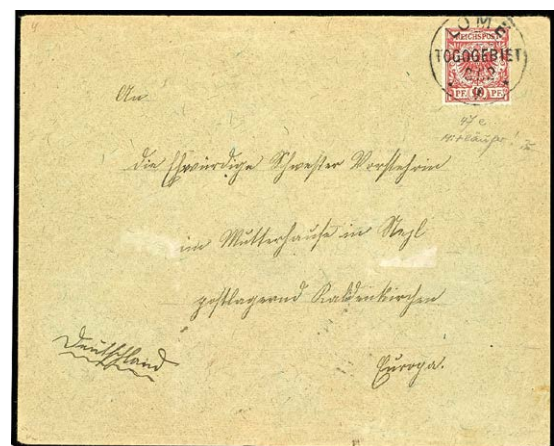 LOME
TOGOGEBIET
REICHSPOST
PF. 10 PF.
47e
An
die Ehrwürdige Schwester Vorsteherin
im Mutterhause in Steyl
postlagernd Kaldenkirchen
Deutschland
Europa.